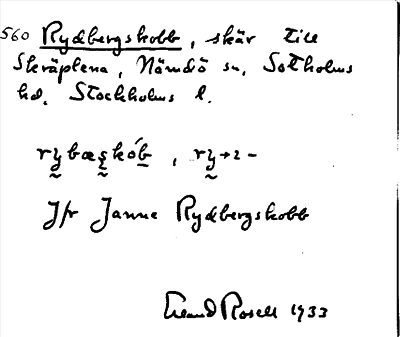 560 Rydbergskobb, skär till
Skräplena, Nämdö sn, Sotholms
hd, Stockholms l.
rybæskób, ry→2-
Jfr Janne Rydbergskobb
Rosell 1933